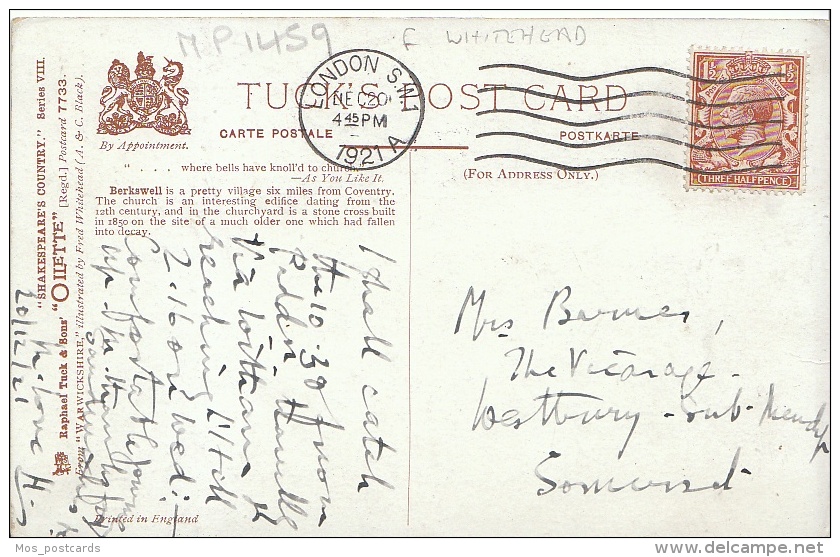 MP1459
F WHITEHEAD
TUCK'S POST CARD
CARTE POSTALE
POSTKARTE
By Appointment.
(FOR ADDRESS ONLY.)
LONDON S.W.1
DE C20
4 45 PM
1921 A
1½ 1½
THREE HALFPENCE
". . . where bells have knoll'd to church
—As You Like It.
Berkswell is a pretty village six miles from Coventry.
The church is an interesting edifice dating from the
12th century, and in the churchyard is a stone cross built
in 1850 on the site of a much older one which had fallen
into decay.
"SHAKESPEARE'S COUNTRY." Series VIII.
Raphael Tuck & Sons' "OILETTE" [Regd.] Postcard 7733.
From "WARWICKSHIRE," illustrated by Fred Whitehead (A. & C. Black).
Printed in England
I shall catch
the 10.30 from
via Witham &
reaching
2.16 on Wed:
comfortable journey
up
20/12/21
Mrs Barnes,
The Vicarage.
Westbury-sub-Mendip
Somerset.
Mos_postcards
delcampe.net